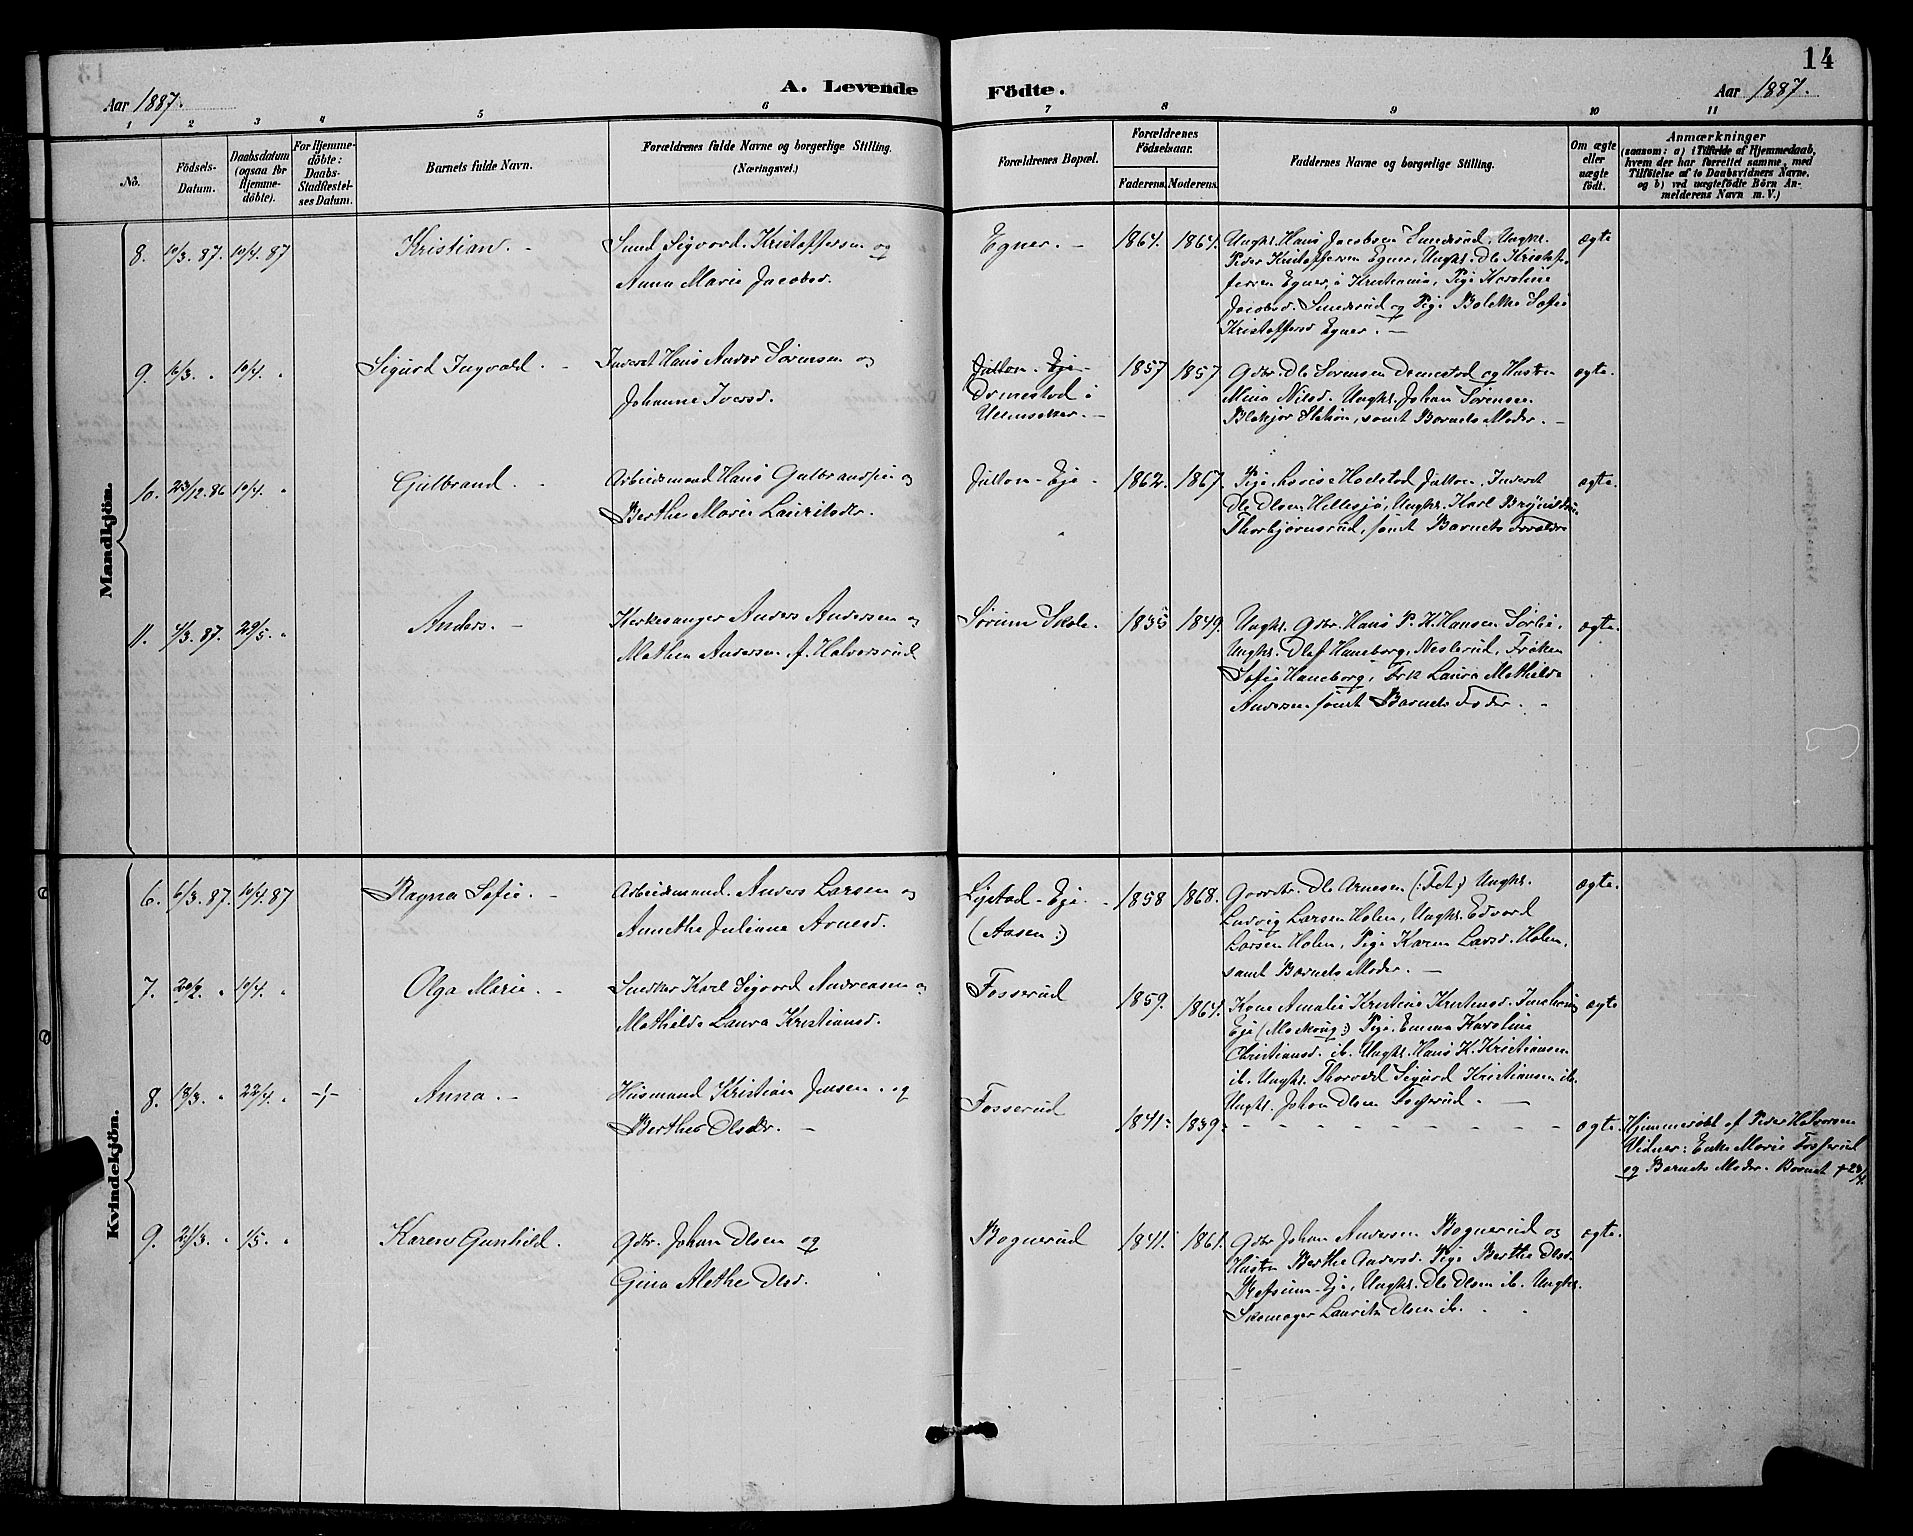 14
Aar 1887.
A. Levende Födte.
Aar 1887.
1 2 3 4 5 6 7 8 9 10 11
No.
Födsels-Datum.
Daabsdatum (ogsaa for Hjemmedöbte).
For Hjemmedöbte: Daabs-Stadfæstelses Datum.
Barnets fulde Navn.
Forældrenes fulde Navne og borgerlige Stilling.
(Næringsvei.)
Forældrenes Bopæl.
Forældrenes Födselsaar.
Faderens. Moderens.
Faddernes Navne og borgerlige Stilling.
Om ægte eller uægte födt.
Anmærkninger
(saasom: a) i Tilfælde af Hjemmedaab,
hvem der har forrettet samme, med
Tilföielse af to Daabsvidners Navne,
og b) ved uægtefödte Börn An-
melderens Navn m. V.)
Mandkjön.
8. 10/3. 87. 10/4 87 Kristian. - Smed Sigvard Kristoffersen og
Anna Marie Jacobsd.
Egner. - 1864. 1864. Ungk. Hans Jacobsen Smedsrud, Ungk.
Peder Kristoffersen Egner, Ungk. Ole Kristof-
fersen Egner, i Kristiania, Pige Karoline
Jacobsd. Smedsrud og Pige Bolette Sofie
Kristoffersd Egner. -
ægte
9. 16/3. " 10/4. " Sigurd Ingvald. - Inderst Hans Anders Sørensen og
Johanne Iversd.
Jullom-Eje-
Domestad i
Ullensaker. -
1857 1857 Gdbr. Ole Sørensen Domestad og Hustru
Mina Nilsd. Ungk. Johan Sørensen
Blakjer Station, samt Barnets Moder. -
ægte.
10. 23/12. 86 10/4. " Gulbrand. - Arbeidsmand Hans Gulbrandsen og
Berthe Marie Lauritsdr.
Jullom-Eje - 1862. 1867. Pige Lovise Jullom, Inderst
Ole Olsen Hellesjø, Ungk. Karl
Thorbjørnsrud, samt Barnets Forældre
ægte.
11. 4/3. 87. 29/5. " Anders. - Kirkesanger Anders Andersen og
Mathea Andersen f. Halvorsrud
Sørum Skole. 1835 1849. Ungk. Gdbr. Hans P. K. Hansen Sørbi,
Ungk. Olaf Haneborg, Neslerud, Frøken
Sofie Haneborg, Frk Laura Mathilde
Andersen samt Barnets Fader. -
ægte.
Kvindekjön.
6. 6/3. 87. 10/4. 87 Ragna Sofie. - Arbeidsmand. Anders Larsen og
Annethe Juliane Arnesd.
Lystad-Eje. -
(Aasen:)
1858 1868. Gaardbr. Ole Arnesen (:Fet:) Ungk.
Ludvig Larsen Holen, Ungk. Edvard
Larsen Holen, Pige Karen Larsd. Holen,
samt Barnets Moder. -
ægte.
7. 20/2. " 10/4. " Olga Marie. - Snedker Karl Sigvard Andreasen og
Mathilde Laura Kristiansd.
Fosserud 1859. 1864. Kone Amalie Kristine Kristensd.
Eje Pige. Emma Karoline
Christiansd. ib. Ungk. Hans K. Kristiansen
ib. Ungk. Thorvald Sigurd Kristiansen ib.
Ungk. Johan Olsen Fosserud. -
ægte
8. 18/3. " 22/4. " -/- Anna. - Husmand Kristian Jensen. og
Berthe Olsdr. -
Fosserud 1841. 1839. - - - - - - - - - ægte. Hjemmedøbt af Peder Halvorsen
Vidner: Enke Marie Fosserud
og Barnets Moder. Barnet † 23/4.
9. 21/3. " 1/5. " Karen Gunhild. Gdbr. Johan Olsen og
Gina Alethe Olsd.
Bognerud 1841. 1861. Gdbr Johan Andersen Bognerud og
Hustru Berthe Andersd. Pige Berthe Olsd.
Refsum-Eje, Ungk. Ole Olsen ib. Ungk.
Skomager Lauritz Olsen ib.
ægte.